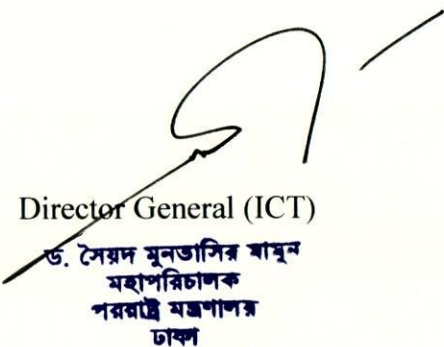 Director General (ICT)
ড. সৈয়দ মুনতাসির মামুন
মহাপরিচালক
পররাষ্ট্র মন্ত্রণালয়
ঢাকা